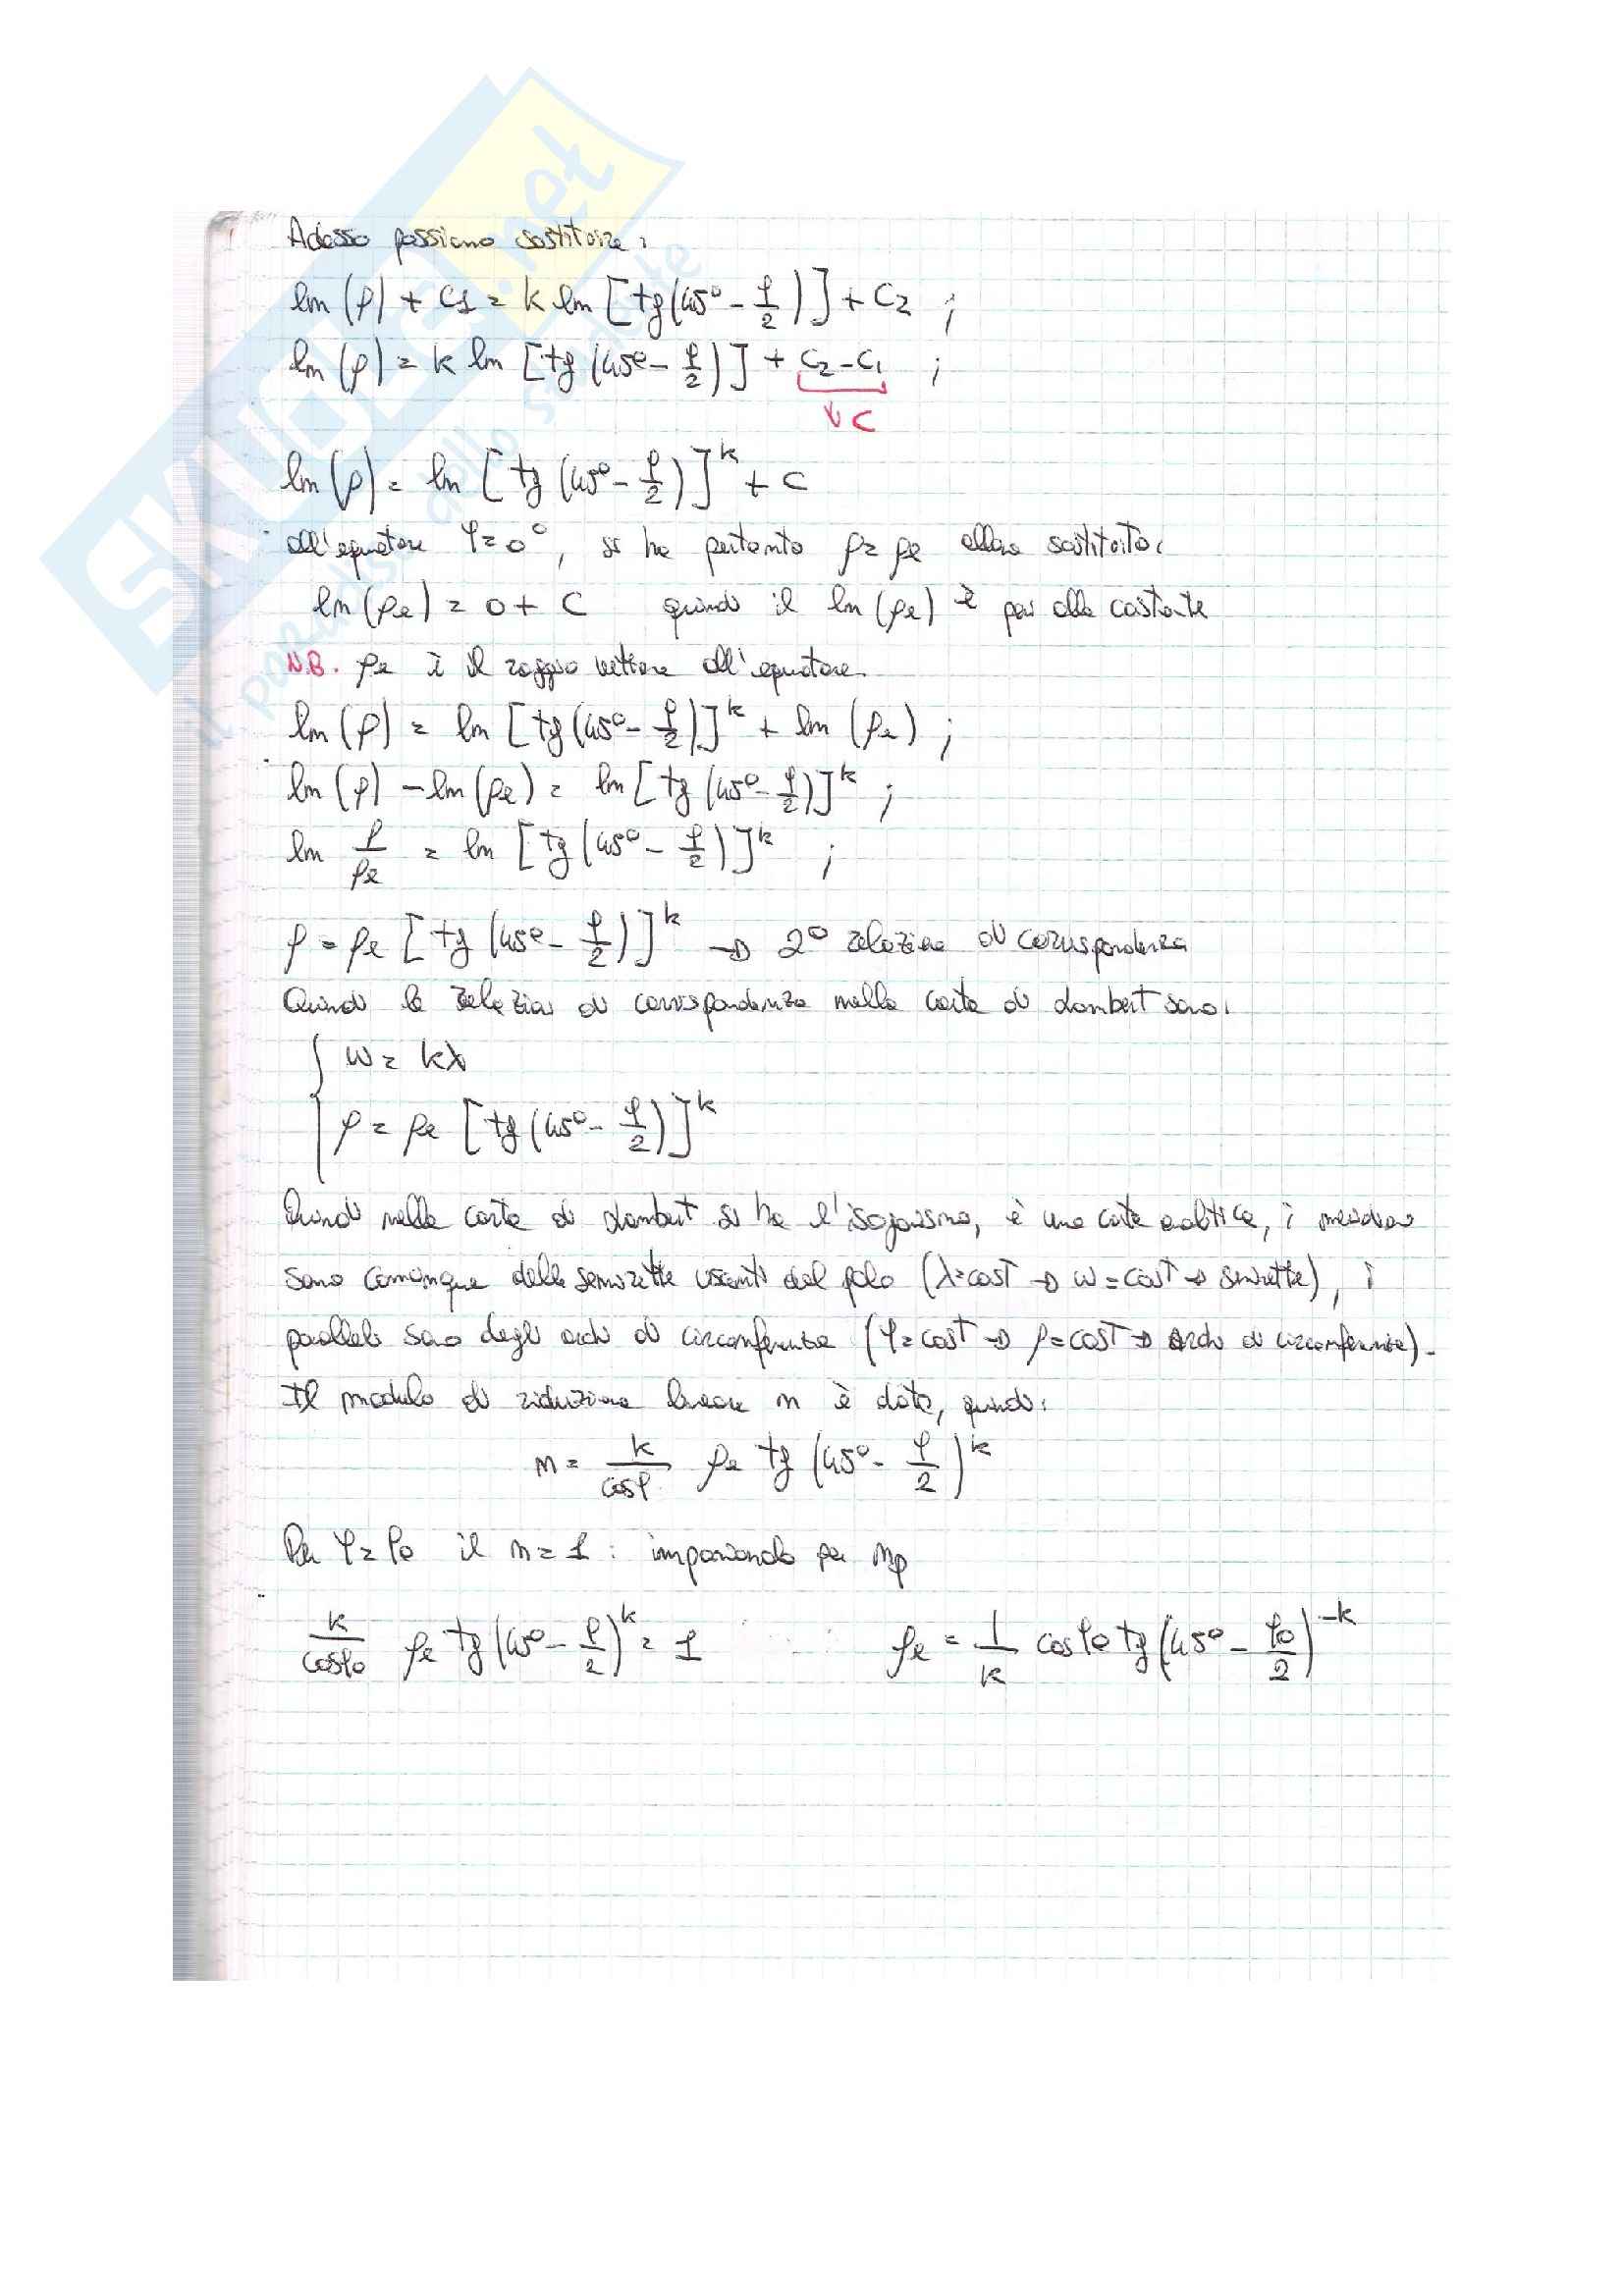 Adesso possiamo sostituire:
ln(ρ) + C1 = k ln [tg(45° - φ/2)] + C2 ;
ln(ρ) = k ln [tg(45° - φ/2)] + C2 - C1 ;
C
ln(ρ) = ln [tg(45° - φ/2)]^k + C
all'equatore φ = 0°, si ha pertanto ρ = ρe allora sostituito:
ln(ρe) = 0 + C quindi il ln(ρe) è pari alla costante
N.B. ρe è il raggio vettore all'equatore.
ln(ρ) = ln [tg(45° - φ/2)]^k + ln(ρe) ;
ln(ρ) - ln(ρe) = ln [tg(45° - φ/2)]^k ;
ln ρ/ρe = ln [tg(45° - φ/2)]^k ;
ρ = ρe [tg(45° - φ/2)]^k → 2° relazione di corrispondenza
Quindi le relazioni di corrispondenza nella carta di Lambert sono:
{ ω = kλ
ρ = ρe [tg(45° - φ/2)]^k
Quindi nella carta di Lambert si ha l'isogonismo, è una carta analitica, i meridiani
sono comunque delle semirette uscenti dal polo (λ=cost → ω=cost → semirette), i
paralleli sono degli archi di circonferenza (φ=cost → ρ=cost → archi di circonferenza).
Il modulo di riduzione lineare m è dato, quindi:
m = k/cosφ ρe tg(45° - φ/2)^k
Per φ = φ0 il m = 1 : imponendo per mp
k/cosφ0 ρe tg(45° - φ/2)^k = 1 ρe = 1/k cosφ0 tg(45° - φ0/2)^-k
SKUOLA.net
il paradiso dello studente